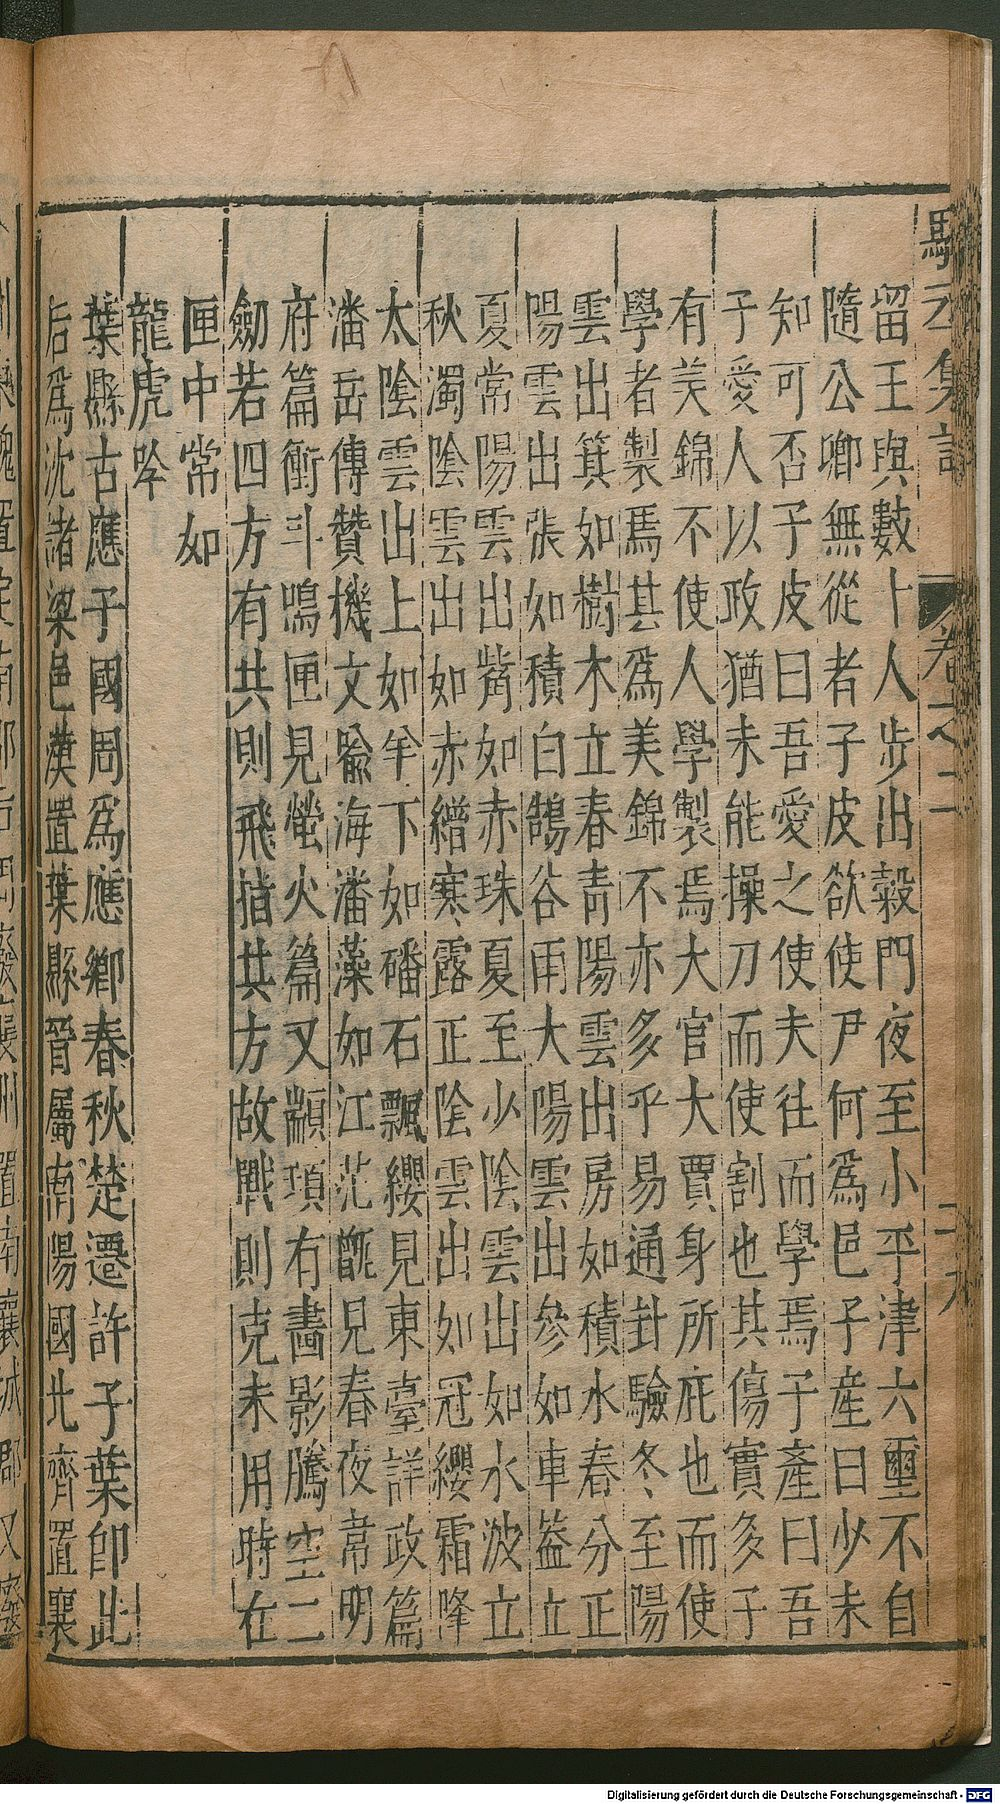 留王與數十人步出榖門夜至小平津六璽不自
隨公卿無從者子皮欲使尹何爲邑子産曰少未
知可否子皮曰吾愛之使夫往而學焉子產曰吾
子愛人以政猶未能操刀而使割也其傷實多子
有美錦不使人學製焉大官大賈身所庇也而使
學者製焉其爲美錦不亦多乎易通卦驗冬至陽
雲出箕如樹木立春青陽雲出房如積水春分正
陽雲出張如積白鵠谷雨大陽雲出參如車蓋立
夏常陽雲出觜如赤珠夏至少陰雲出如水波立
秋濁陰雲出如赤繒寒露正陰雲出如冠纓霜降
太陰雲出上如羊下如磻石飄纓見東臺詳政篇
潘岳傳贊機文喻海潘藻如江茫甑見春夜常明
府篇衝斗鳴匣見螢火篇又顓頊有畵影騰空二
劒若四方有共則飛指共方故戰則克未用時在
匣中常如
龍虎吟
葉縣古應子國周爲應鄉春秋楚遷許子葉卽此
后爲沈諸梁邑漢置葉縣晉屬南陽國北齊置襄
卷之二
二九
Digitalisierung gefördert durch die Deutsche Forschungsgemeinschaft - DFG